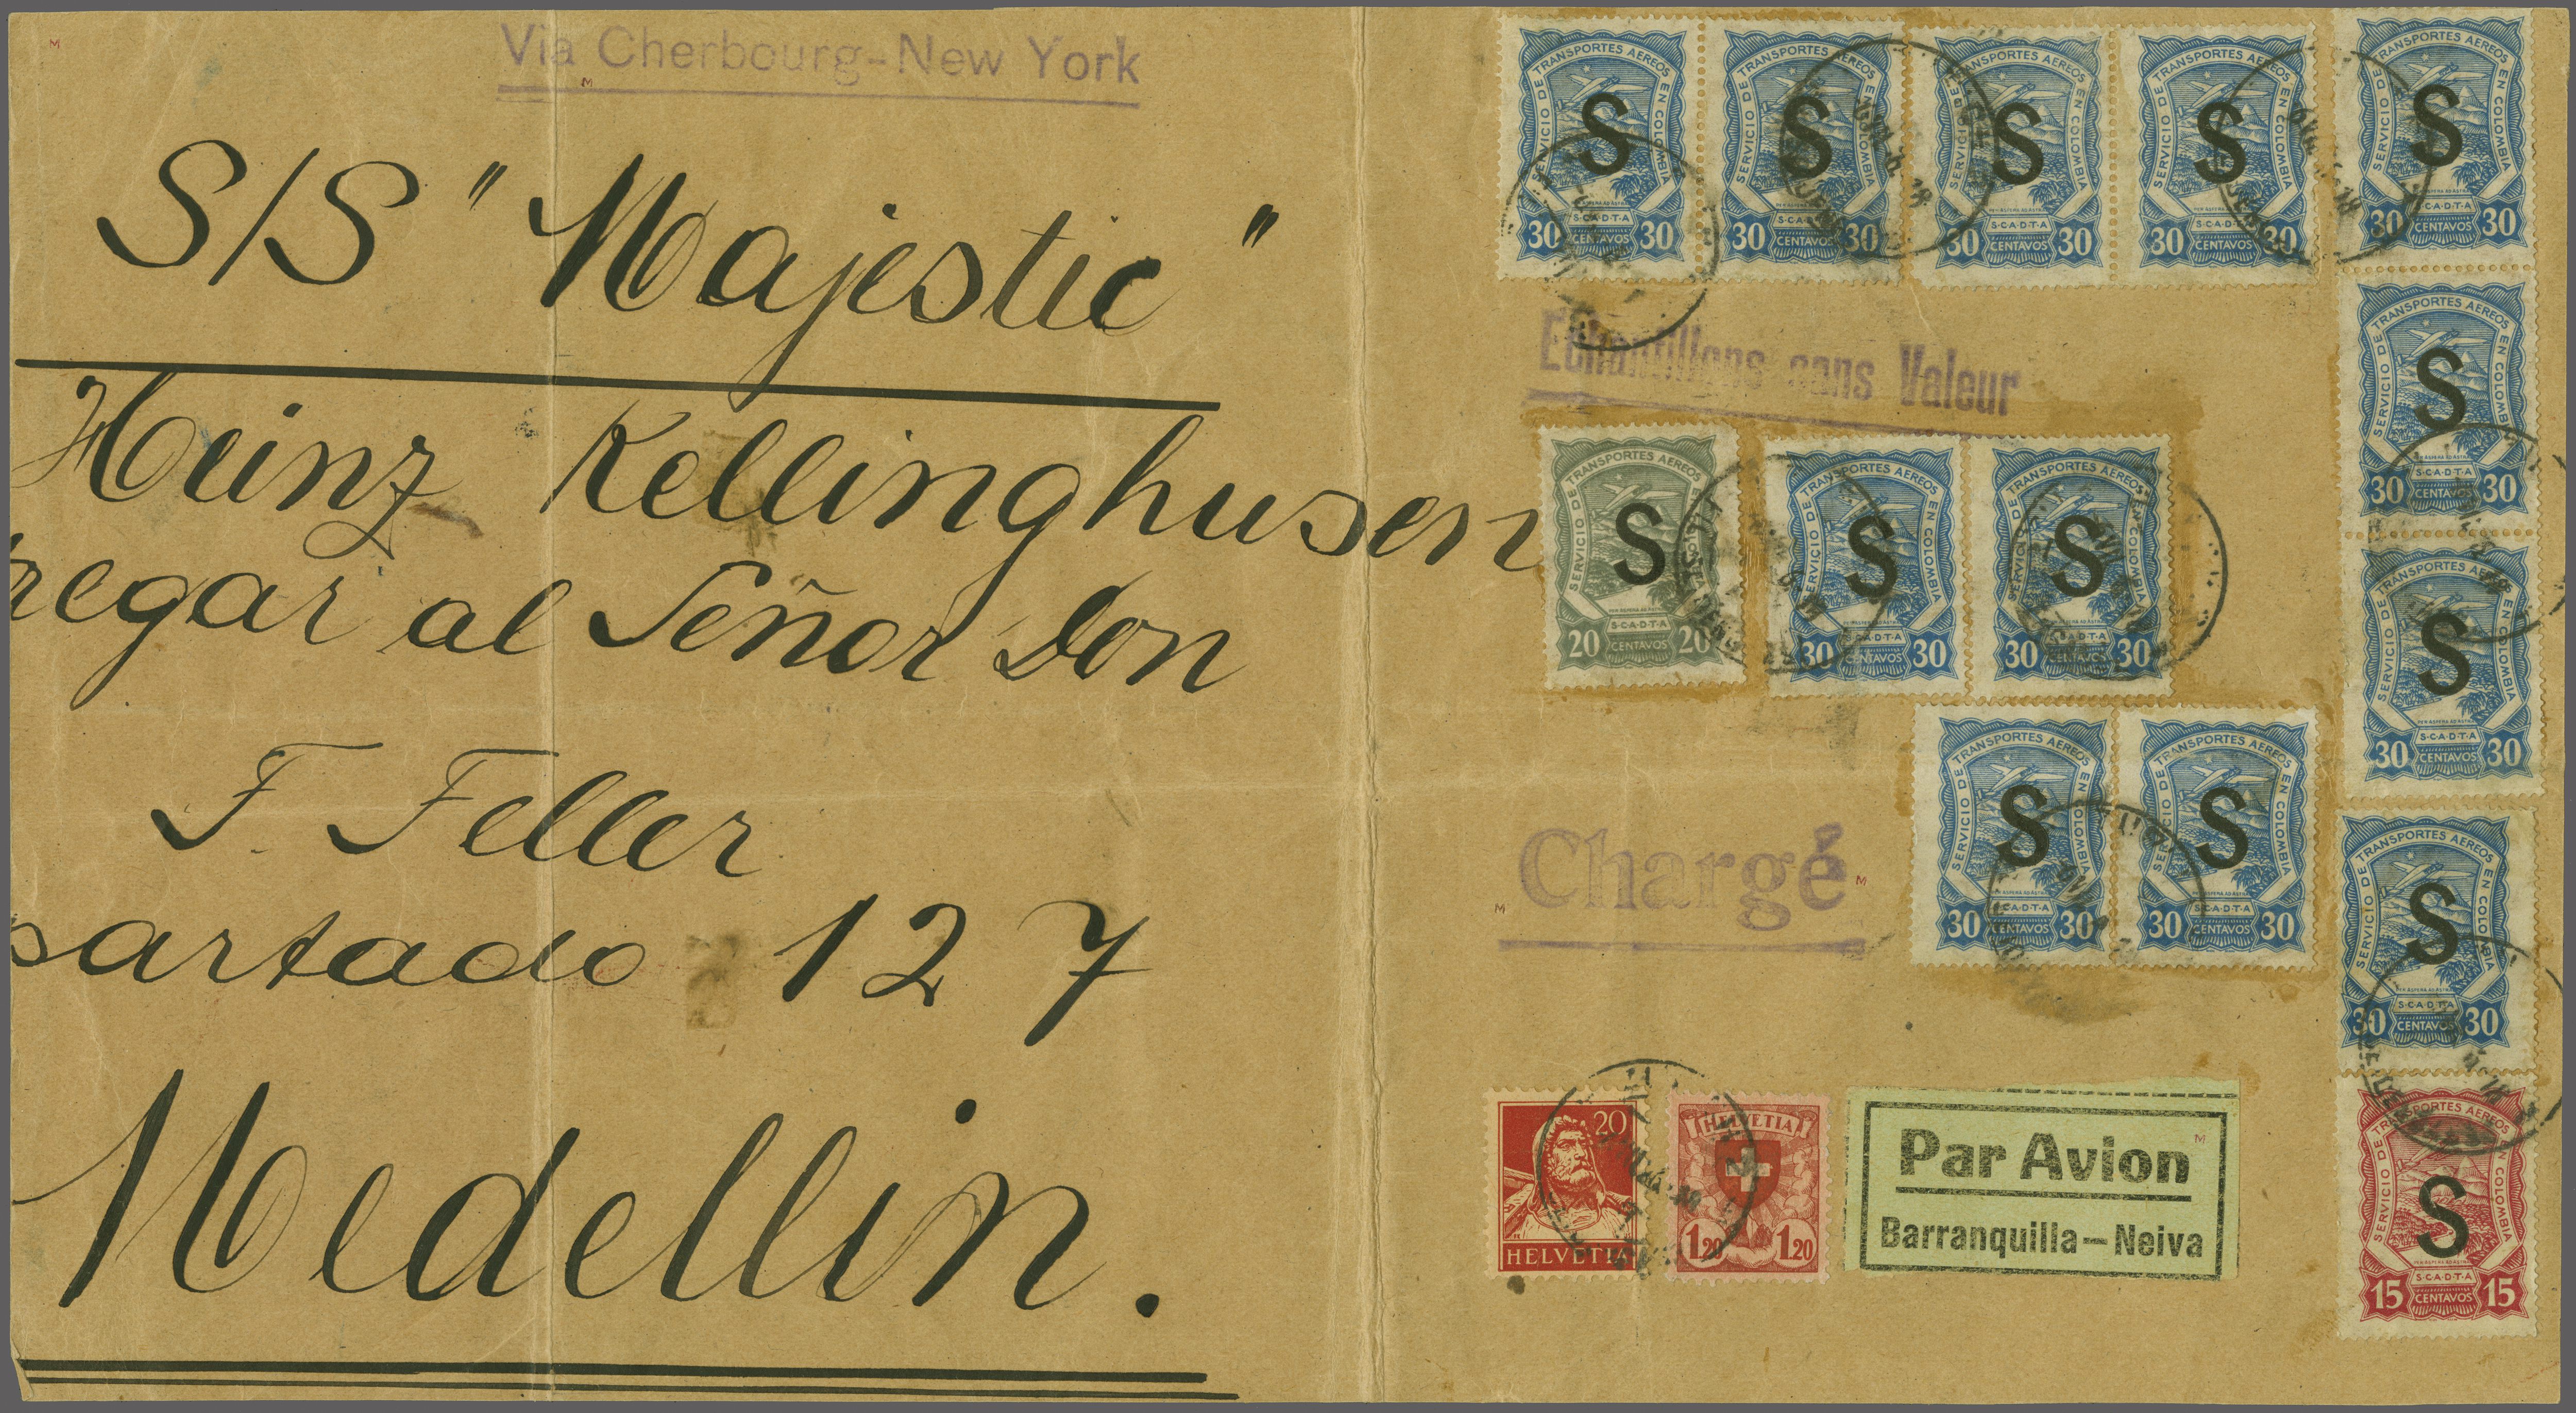 Via Cherbourg-New York
S/S "Majestic"
Heinz Kellinghusen
regar al Señor Don
F. Feller
artado 127
Medellin.
SERVICIO DE TRANSPORTES AEREOS EN COLOMBIA
S
S·C·A·D·T·A
30 CENTAVOS 30
SERVICIO DE TRANSPORTES AEREOS EN COLOMBIA
S
S·C·A·D·T·A
30 CENTAVOS 30
SERVICIO DE TRANSPORTES AEREOS EN COLOMBIA
S
S·C·A·D·T·A
30 CENTAVOS 30
SERVICIO DE TRANSPORTES AEREOS EN COLOMBIA
S
S·C·A·D·T·A
30 CENTAVOS 30
SERVICIO DE TRANSPORTES AEREOS EN COLOMBIA
S
S·C·A·D·T·A
30 CENTAVOS 30
SERVICIO DE TRANSPORTES AEREOS EN COLOMBIA
S
S·C·A·D·T·A
30 CENTAVOS 30
SERVICIO DE TRANSPORTES AEREOS EN COLOMBIA
S
PER ASPERA AD ASTRA
S·C·A·D·T·A
30 CENTAVOS 30
Echantillons sans Valeur
SERVICIO DE TRANSPORTES AEREOS EN COLOMBIA
S
PER ASPERA AD ASTRA
S·C·A·D·T·A
20 CENTAVOS 20
SERVICIO DE TRANSPORTES AEREOS EN COLOMBIA
S
S·C·A·D·T·A
30 CENTAVOS 30
SERVICIO DE TRANSPORTES AEREOS EN COLOMBIA
S
S·C·A·D·T·A
30 CENTAVOS 30
SERVICIO DE TRANSPORTES AEREOS EN COLOMBIA
S
S·C·A·D·T·A
30 CENTAVOS 30
SERVICIO DE TRANSPORTES AEREOS EN COLOMBIA
S
S·C·A·D·T·A
30 CENTAVOS 30
SERVICIO DE TRANSPORTES AEREOS EN COLOMBIA
S
S·C·A·D·T·A
30 CENTAVOS 30
Chargé
20
HELVETIA
HELVETIA
1.20 1.20
Par Avion
Barranquilla–Neiva
SERVICIO DE TRANSPORTES AEREOS EN COLOMBIA
S
S·C·A·D·T·A
15 CENTAVOS 15